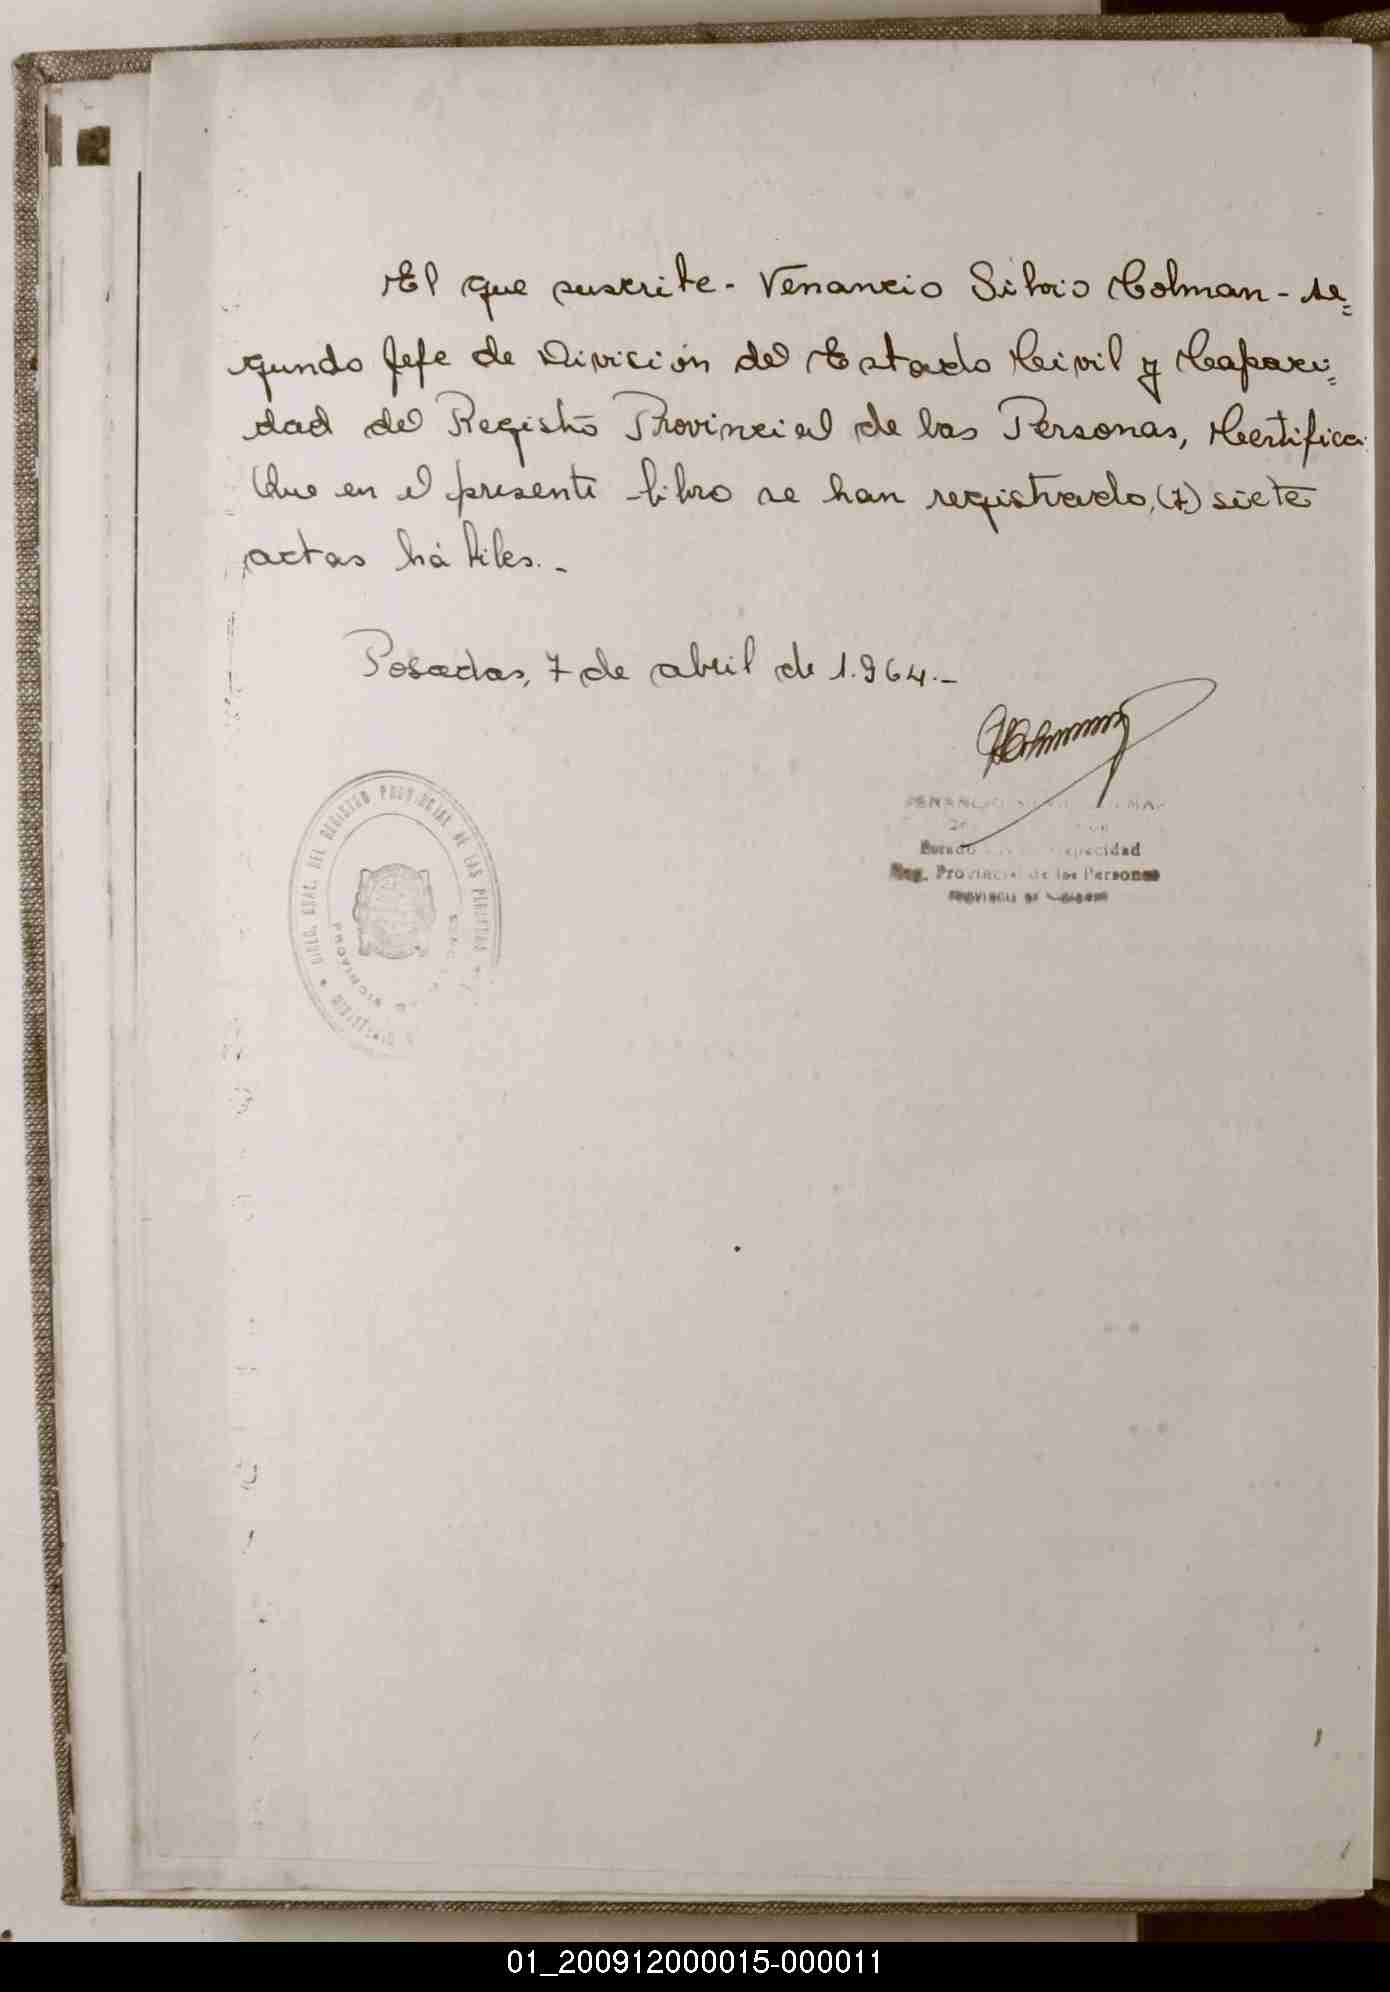 El que suscribe - Venancio Silvio Colman - se=
gundo Jefe de División del Estado Civil y Capaci=
dad del Registro Provincial de las Personas, Certifica:
Que en el presente libro se han registrado, (7) siete
actas hábiles.-
Posadas, 7 de abril de 1.964.-
DIREC. GRAL. DEL REGISTRO PROVINCIAL DE LAS PERSONAS
PROVINCIA
Reg. Provincial de las Personas
01_200912000015-000011